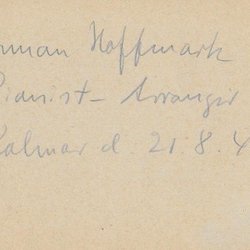 rman Hoffmark
Pianist - Arranger
Kalmar d. 21.8.4